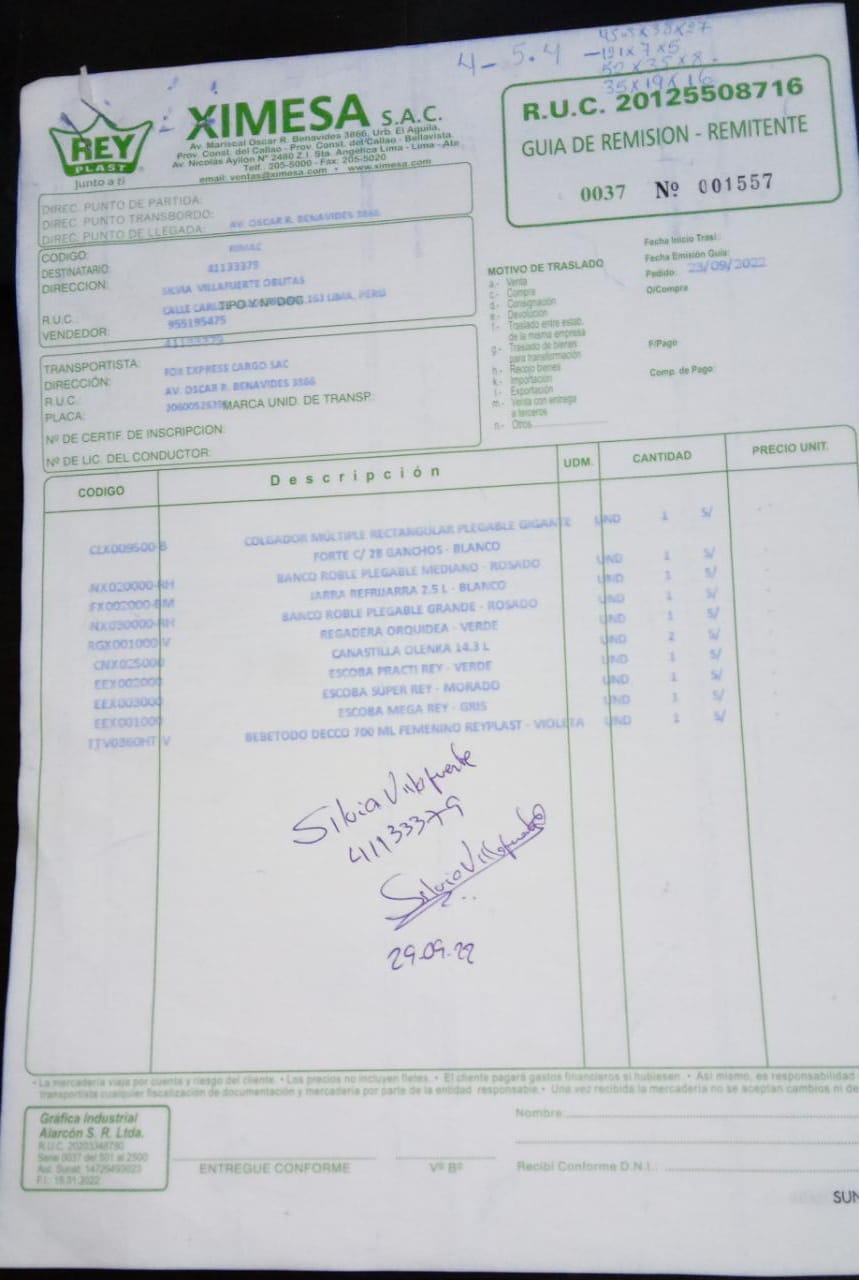 4- 5.4
-191 x 7 x 5
50 x 35 x 8.
35 x 19 x 16
REY
PLAST
Junto a ti
XIMESA S.A.C.
Av. Mariscal Oscar R. Benavides 3866, Urb. El Aguila,
Prov. Const. del Callao - Prov. Const. del Callao - Bellavista
Av. Nicolás Ayllon Nº 2480 Z.I. Sta. Angélica Lima - Lima - Ate
Telf. 205-5000 - Fax: 205-5020
email: ventas@ximesa.com • www.ximesa.com
R.U.C. 20125508716
GUIA DE REMISION - REMITENTE
0037 Nº 001557
DIREC. PUNTO DE PARTIDA:
DIREC. PUNTO TRANSBORDO:
DIREC. PUNTO DE LLEGADA: AV. OSCAR R. BENAVIDES 3866
CODIGO: RIMAC
DESTINATARIO: 41133379
DIRECCION: SILVIA VILLAFUERTE OBLITAS
CALLE TIPO Y Nº DOC 163 LIMA, PERU
R.U.C.: 955195475
VENDEDOR: 41133379
TRANSPORTISTA: FOX EXPRESS CARGO SAC
DIRECCIÓN: AV. OSCAR R. BENAVIDES 3866
R.U.C.: MARCA UNID. DE TRANSP.:
PLACA:
Nº DE CERTIF. DE INSCRIPCION:
Nº DE LIC. DEL CONDUCTOR:
MOTIVO DE TRASLADO
a.- Venta
c.- Compra
d.- Consignación
e.- Devolución
f.- Traslado entre estab.
de la misma empresa
g.- Traslado de bienes
para transformación
h.- Recojo bienes
k.- Importación
l.- Exportación
m.- Venta con entrega
a terceros
n.- Otros
Fecha Inicio Trasl.:
Fecha Emisión Guía:
Pedido: 23/09/2022
O/Compra
F/Pago
Comp. de Pago:
CODIGO Descripción UDM. CANTIDAD PRECIO UNIT.
CLX009500-B COLGADOR MÚLTIPLE RECTANGULAR PLEGABLE GIGANTE UND 1 S/
FORTE C/ 28 GANCHOS - BLANCO
NX020000-RH BANCO ROBLE PLEGABLE MEDIANO - ROSADO UND 1 S/
FX002000-BM JARRA REFRIJARRA 2.5 L - BLANCO UND 1 S/
NX030000-RH BANCO ROBLE PLEGABLE GRANDE - ROSADO UND 1 S/
RGX001000-V REGADERA ORQUIDEA - VERDE UND 1 S/
CNX025000 CANASTILLA OLENKA 14.3 L UND 2 S/
EEX002000 ESCOBA PRACTI REY - VERDE UND 1 S/
EEX003000 ESCOBA SÚPER REY - MORADO UND 1 S/
EEX001000 ESCOBA MEGA REY - GRIS UND 1 S/
TTV0360HT-V BEBETODO DECCO 700 ML FEMENINO REYPLAST - VIOLETA UND 1 S/
Silvia Villafuerte
41133379
Silvia Villafuerte
29.09.22
• La mercadería viaja por cuenta y riesgo del cliente. • Los precios no incluyen fletes. • El cliente pagará gastos financieros si hubiesen. • Asi mismo, es responsabilidad
transportista cualquier fiscalización de documentación y mercadería por parte de la entidad responsable. • Una vez recibida la mercadería no se aceptan cambios ni de
Gráfica Industrial
Alarcón S. R. Ltda.
Serie 0037 del 501 al 2500
F.I.: 18.01.2022
ENTREGUE CONFORME
Vº Bº
Nombre
Recibí Conforme D.N.I.:
SUN